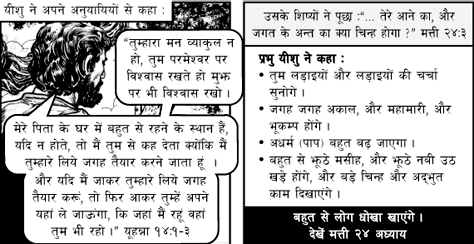 यीशु ने अपने अनुयायियों से कहा :
“तुम्हारा मन व्याकुल न
हो, तुम परमेश्वर पर
विश्वास रखते हो मुझ
पर भी विश्वास रखो ।
मेरे पिता के घर में बहुत से रहने के स्थान हैं,
यदि न होते, तो मैं तुम से कह देता क्योंकि मैं
तुम्हारे लिये जगह तैयार करने जाता हूं ।
और यदि मैं जाकर तुम्हारे लिये जगह
तैयार करूं, तो फिर आकर तुम्हें अपने
यहां ले जाऊंगा, कि जहां मैं रहूं वहां
तुम भी रहो ।” यूहन्ना १४:१-३
उसके शिष्यों ने पूछा :“... तेरे आने का, और
जगत के अन्त का क्या चिन्ह होगा ?” मत्ती २४:३
प्रभु यीशु ने कहा :
• तुम लड़ाइयों और लड़ाइयों की चर्चा
सुनोगे ।
• जगह जगह अकाल, और महामारी, और
भूकम्प होंगे ।
• अधर्म (पाप) बहुत बढ़ जाएगा ।
• बहुत से झूठे मसीह, और झूठे नबी उठ
खड़े होगे, और बड़े चिन्ह और अद्‌भुत
काम दिखाएंगे ।
बहुत से लोग धोखा खाएंगे ।
देखें मत्ती २४ अध्याय